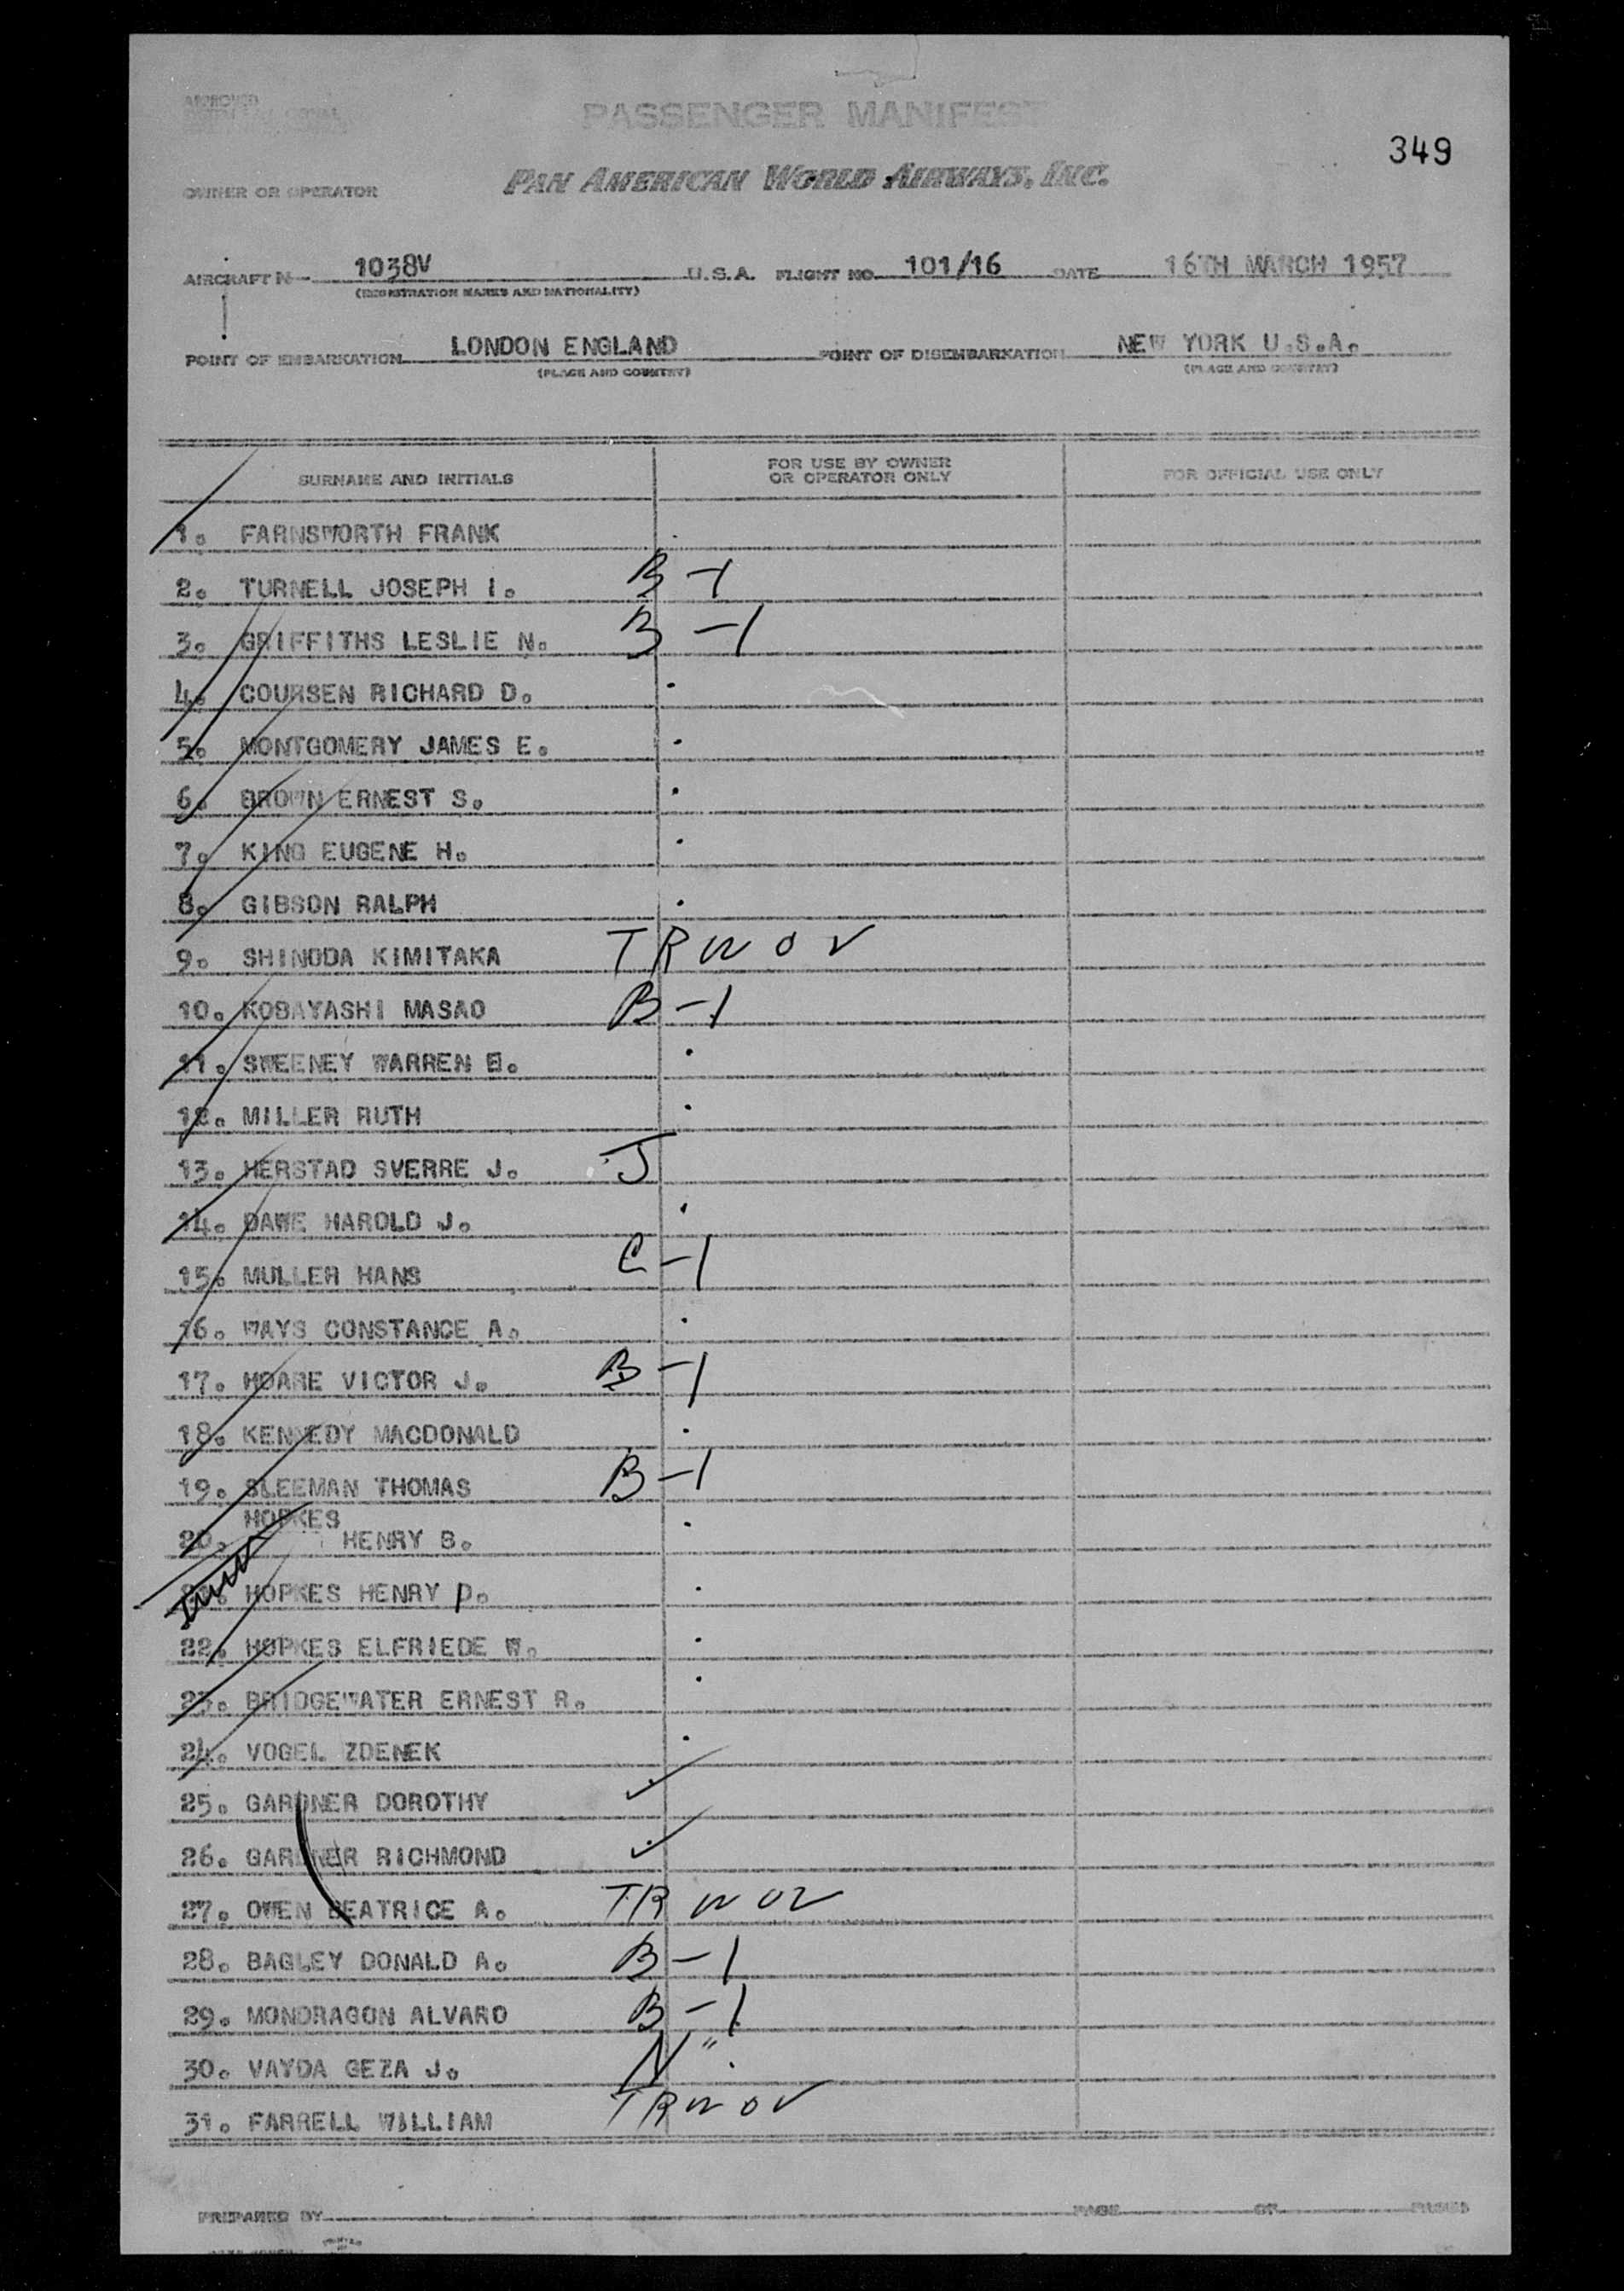 APPROVED
PASSENGER MANIFEST
349
OWNER OR OPERATOR PAN AMERICAN WORLD AIRWAYS, INC.
AIRCRAFT N 1038V U.S.A. FLIGHT NO. 101/16 DATE 16TH MARCH 1957
(REGISTRATION MARKS AND NATIONALITY)
POINT OF EMBARKATION LONDON ENGLAND POINT OF DISEMBARKATION NEW YORK U.S.A.
(PLACE AND COUNTRY) (PLACE AND COUNTRY)
SURNAME AND INITIALS FOR USE BY OWNER OR OPERATOR ONLY FOR OFFICIAL USE ONLY
1. FARNSWORTH FRANK
2. TURNELL JOSEPH I. B-1
3. GRIFFITHS LESLIE N. B-1
4. COURSEN RICHARD D.
5. MONTGOMERY JAMES E.
6. BROWN ERNEST S.
7. KING EUGENE H.
8. GIBSON RALPH
9. SHINODA KIMITAKA TRWOV
10. KOBAYASHI MASAO B-1
11. SWEENEY WARREN E.
12. MILLER RUTH
13. HERSTAD SVERRE J. J
14. DAWE HAROLD J.
15. MULLER HANS C-1
16. WAYS CONSTANCE A.
17. HOARE VICTOR J. B-1
18. KENNEDY MACDONALD
19. SLEEMAN THOMAS B-1
HOPKES
20. HENRY B.
HOPKES HENRY D.
22. HOPKES ELFRIEDE W.
23. BRIDGEWATER ERNEST R.
24. VOGEL ZDENEK
25. GARDNER DOROTHY ✓
26. GARDNER RICHMOND ✓
27. OWEN BEATRICE A. TRWOV
28. BAGLEY DONALD A. B-1
29. MONDRAGON ALVARO B-1
30. VAYDA GEZA J. N "
31. FARRELL WILLIAM TRWOV
PREPARED BY PAGE OF PAGES